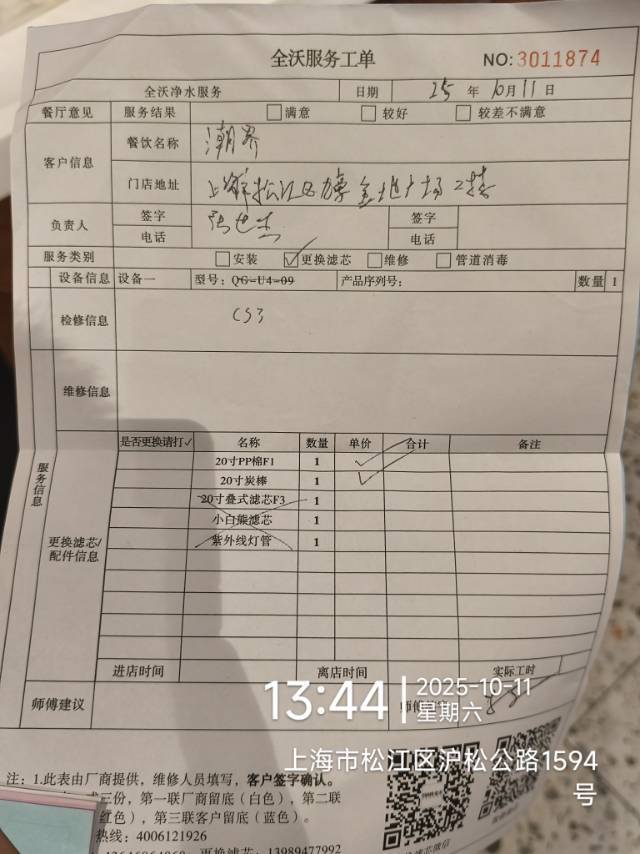 全沃服务工单 NO:3011874
全沃净水服务 日期 25 年 10月 11 日
餐厅意见 服务结果 □满意 □较好 □较差不满意
客户信息 餐饮名称 潮界
门店地址 上海市松江区 金地广场 2楼
负责人 签字 签字
电话 电话
服务类别 □安装 ☑更换滤芯 □维修 □管道消毒
服务信息
设备信息 设备一 型号：QG-U4-09 产品序列号： 数量 1
检修信息 CS3
维修信息
更换滤芯/配件信息
是否更换请打✓ 名称 数量 单价 合计 备注
20寸PP棉F1 1 ✓
20寸炭棒 1 ✓
20寸叠式滤芯F3 1
小白熊滤芯 1
紫外线灯管 1
进店时间 离店时间 实际工时
师傅建议
13:44 2025-10-11
星期六
上海市松江区沪松公路1594
号
注：1.此表由厂商提供，维修人员填写，客户签字确认。
式三份，第一联厂商留底（白色），第二联
红色），第三联客户留底（蓝色）。
热线：4006121926
更换滤芯：13989477992